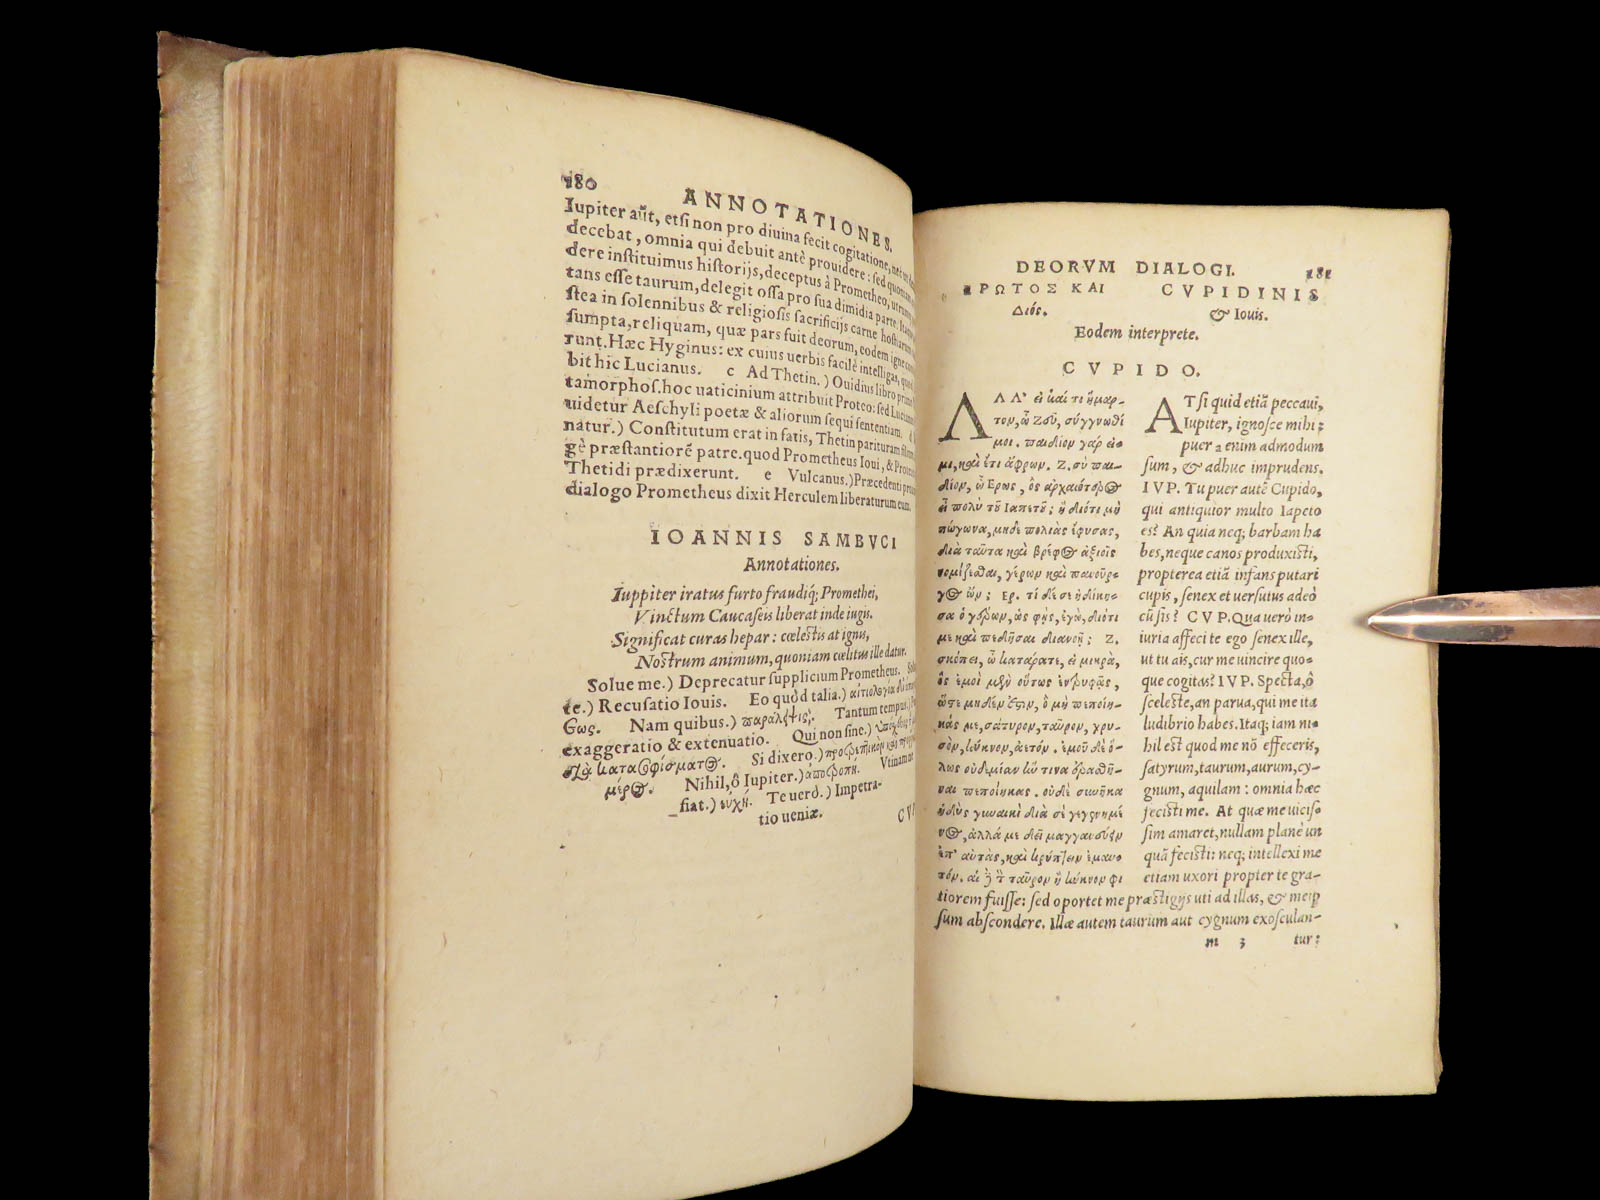 180
ANNOTATIONES.
Iupiter aūt, etsi non pro diuina fecit cogitatione, nec ut
decebat, omnia qui debuit antè prouidere: sed quoniam
dere instituimus historijs, deceptus à Prometheo, utrum
tans esse taurum, delegit ossa pro sua dimidia parte. Itaque
stea in solennibus & religiosis sacrificijs carne hostiarum
sumpta, reliquam, quæ pars fuit deorum, eodem igne
runt. Hæc Hyginus: ex cuius uerbis facilè intelligas, quid
bit hic Lucianus. c Ad Thetin.) Ouidius libro primo
tamorphos. hoc uaticinium attribuit Proteo: sed Lucianus
uidetur Aeschyli poetæ & aliorum sequi sententiam.
natur.) Constitutum erat in fatis, Thetin parituram
gè præstantiorē patre. quod Prometheus Ioui, &
Thetidi prædixerunt. e Vulcanus.) Præcedenti
dialogo Prometheus dixit Herculem liberaturum eum.
IOANNIS SAMBVCI
Annotationes.
Iuppiter iratus furto fraudiq; Promethei,
Vinctum Caucaseis liberat inde iugis.
Significat curas hepar: cœlestis at ignis,
Nostrum animum, quoniam cœlitus ille datur.
Solue me.) Deprecatur supplicium Prometheus.
te.) Recusatio Iouis. Eo quòd talia.) αἰτιολογία
Nam quibus.) παράληψις. Tantum tempus.)
exaggeratio & extenuatio. Qui non sine.)
Si dixero.) προτρεπτικὸν
μέρος. Nihil, ô Iupiter.) ἀποτροπή. Vtinam
fiat.) εὐχή. Te uerò.) Impetra-
tio ueniæ.
CVP
DEORVM DIALOGI. 181
ΕΡΩΤΟΣ ΚΑΙ
Διός.
CVPIDINIS
& Iouis.
Eodem interprete.
CVPIDO.
ΑΛΛ' εἰ καί τι ἥμαρ-
τον, ὦ Ζεῦ, σύγγνωθί
μοι. παιδίον γάρ εἰ-
μι, καὶ ἔτι ἄφρων. Ζ. σὺ παι-
δίον, ὦ Ἔρως, ὃς ἀρχαιότερος
εἶ πολὺ τοῦ Ἰαπετοῦ; ἢ διότι μὴ
πώγωνα, μηδὲ πολιὰς ἔφυσας,
διὰ ταῦτα καὶ βρέφος ἀξιοῖς
νομίζεσθαι, γέρων καὶ πανοῦρ-
γος ὤν; Ερ. τί δέ σε ἠδίκη-
σα ὁ γέρων, ὡς φῂς, ἐγὼ, διότι
με καὶ πεδῆσαι διανοῇ; Ζ.
σκόπει, ὦ κατάρατε, εἰ μικρὰ,
ὃς ἐμοὶ μὲν οὕτως ἐντρυφᾷς,
ὥστε μηδέν ἐστιν, ὃ μὴ πεποίη-
κάς με, σάτυρον, ταῦρον, χρυ-
σὸν, κύκνον, ἀετόν. ἐμοῦ δὲ ὅ-
λως οὐδεμίαν ἥν τινα ἐρασθῆ-
ναι πεποίηκας. οὐδὲ συνῆκα
ἡδὺς γυναικὶ διὰ σὲ γεγενημέ
νος, ἀλλά με δεῖ μαγγανεύειν
ἐπ' αὐτὰς, καὶ κρύπτειν ἐμαυ-
τόν. αἱ δὲ τὸ ταῦρον ἢ κύκνον φι
AT si quid etiā peccaui,
Iupiter, ignosce mihi:
puer enim admodum
sum, & adhuc imprudens.
IVP. Tu puer autē Cupido,
qui antiquior multo Iapeto
es? An quia neq; barbam ha
bes, neque canos produxisti,
propterea etiā infans putari
cupis, senex et uersutus adeò
cùm sis? CVP. Qua uerò in-
iuria affeci te ego senex ille,
ut tu ais, cur me uincire quo-
que cogitas? IVP. Specta, ô
sceleste, an parua, qui me ita
ludibrio habes. Itaq; iam ni-
hil est quod me nō effeceris,
satyrum, taurum, aurum, cy-
gnum, aquilam: omnia hæc
fecisti me. At quæ me uicis-
sim amaret, nullam planè un
quā fecisti: neq; intellexi me
etiam uxori propter te gra-
tiorem fuisse: sed oportet me præstigijs uti ad illas, & meip
sum abscondere. Illæ autem taurum aut cygnum exosculan-
m 3 tur: